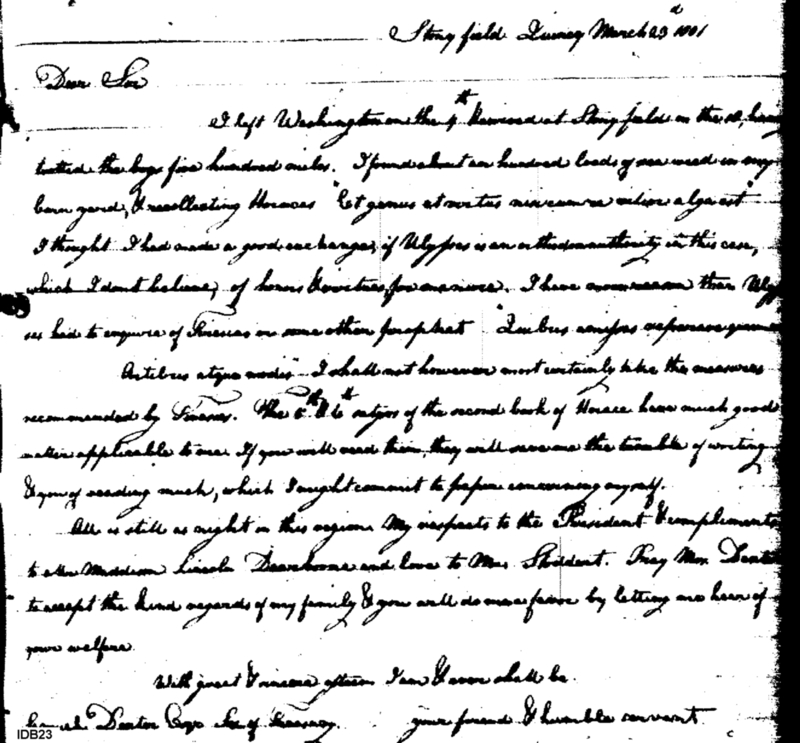 Stony field Quincy March 23d 1801
Dear Sir
I left Washington on the 4th & arrived at Stony field on the 18, having
trotted the bogs five hundred miles. I found about an hundred loads of sea weed in my
barn yard, & recollecting Horaces "Et genus et virtus nisi cum re vilior alga est"
I thought I had made a good exchange, if Ulysses is an orthodox authority in this case,
which I dont believe, of honors & virtues, for manure. I have more reason than Ulys
ses had to enquire of Tiresias or some other prophet "Quibus amissas reparare queam res
Artibus atque modis" I shall not however most certainly take the measures
recommended by Tiresias. The 5th & 6th satyrs of the second book of Horace have much good
matter applicable to me. If you will read them they will save me the trouble of writing
& you of reading much, which I might commit to paper concerning myself.
All is still as night in this region. My respects to the President & compliments
to Mr Maddison Lincoln Dearborne and love to Mr Stoddert. Pray Mrs Dexter
to accept the kind regards of my family & you will do me a favor by letting me hear of
your welfare.
With great & sincere esteem I am & ever shall be
Samuel Dexter Esqr Sec of Treasury. your friend & humble servant
IDB23